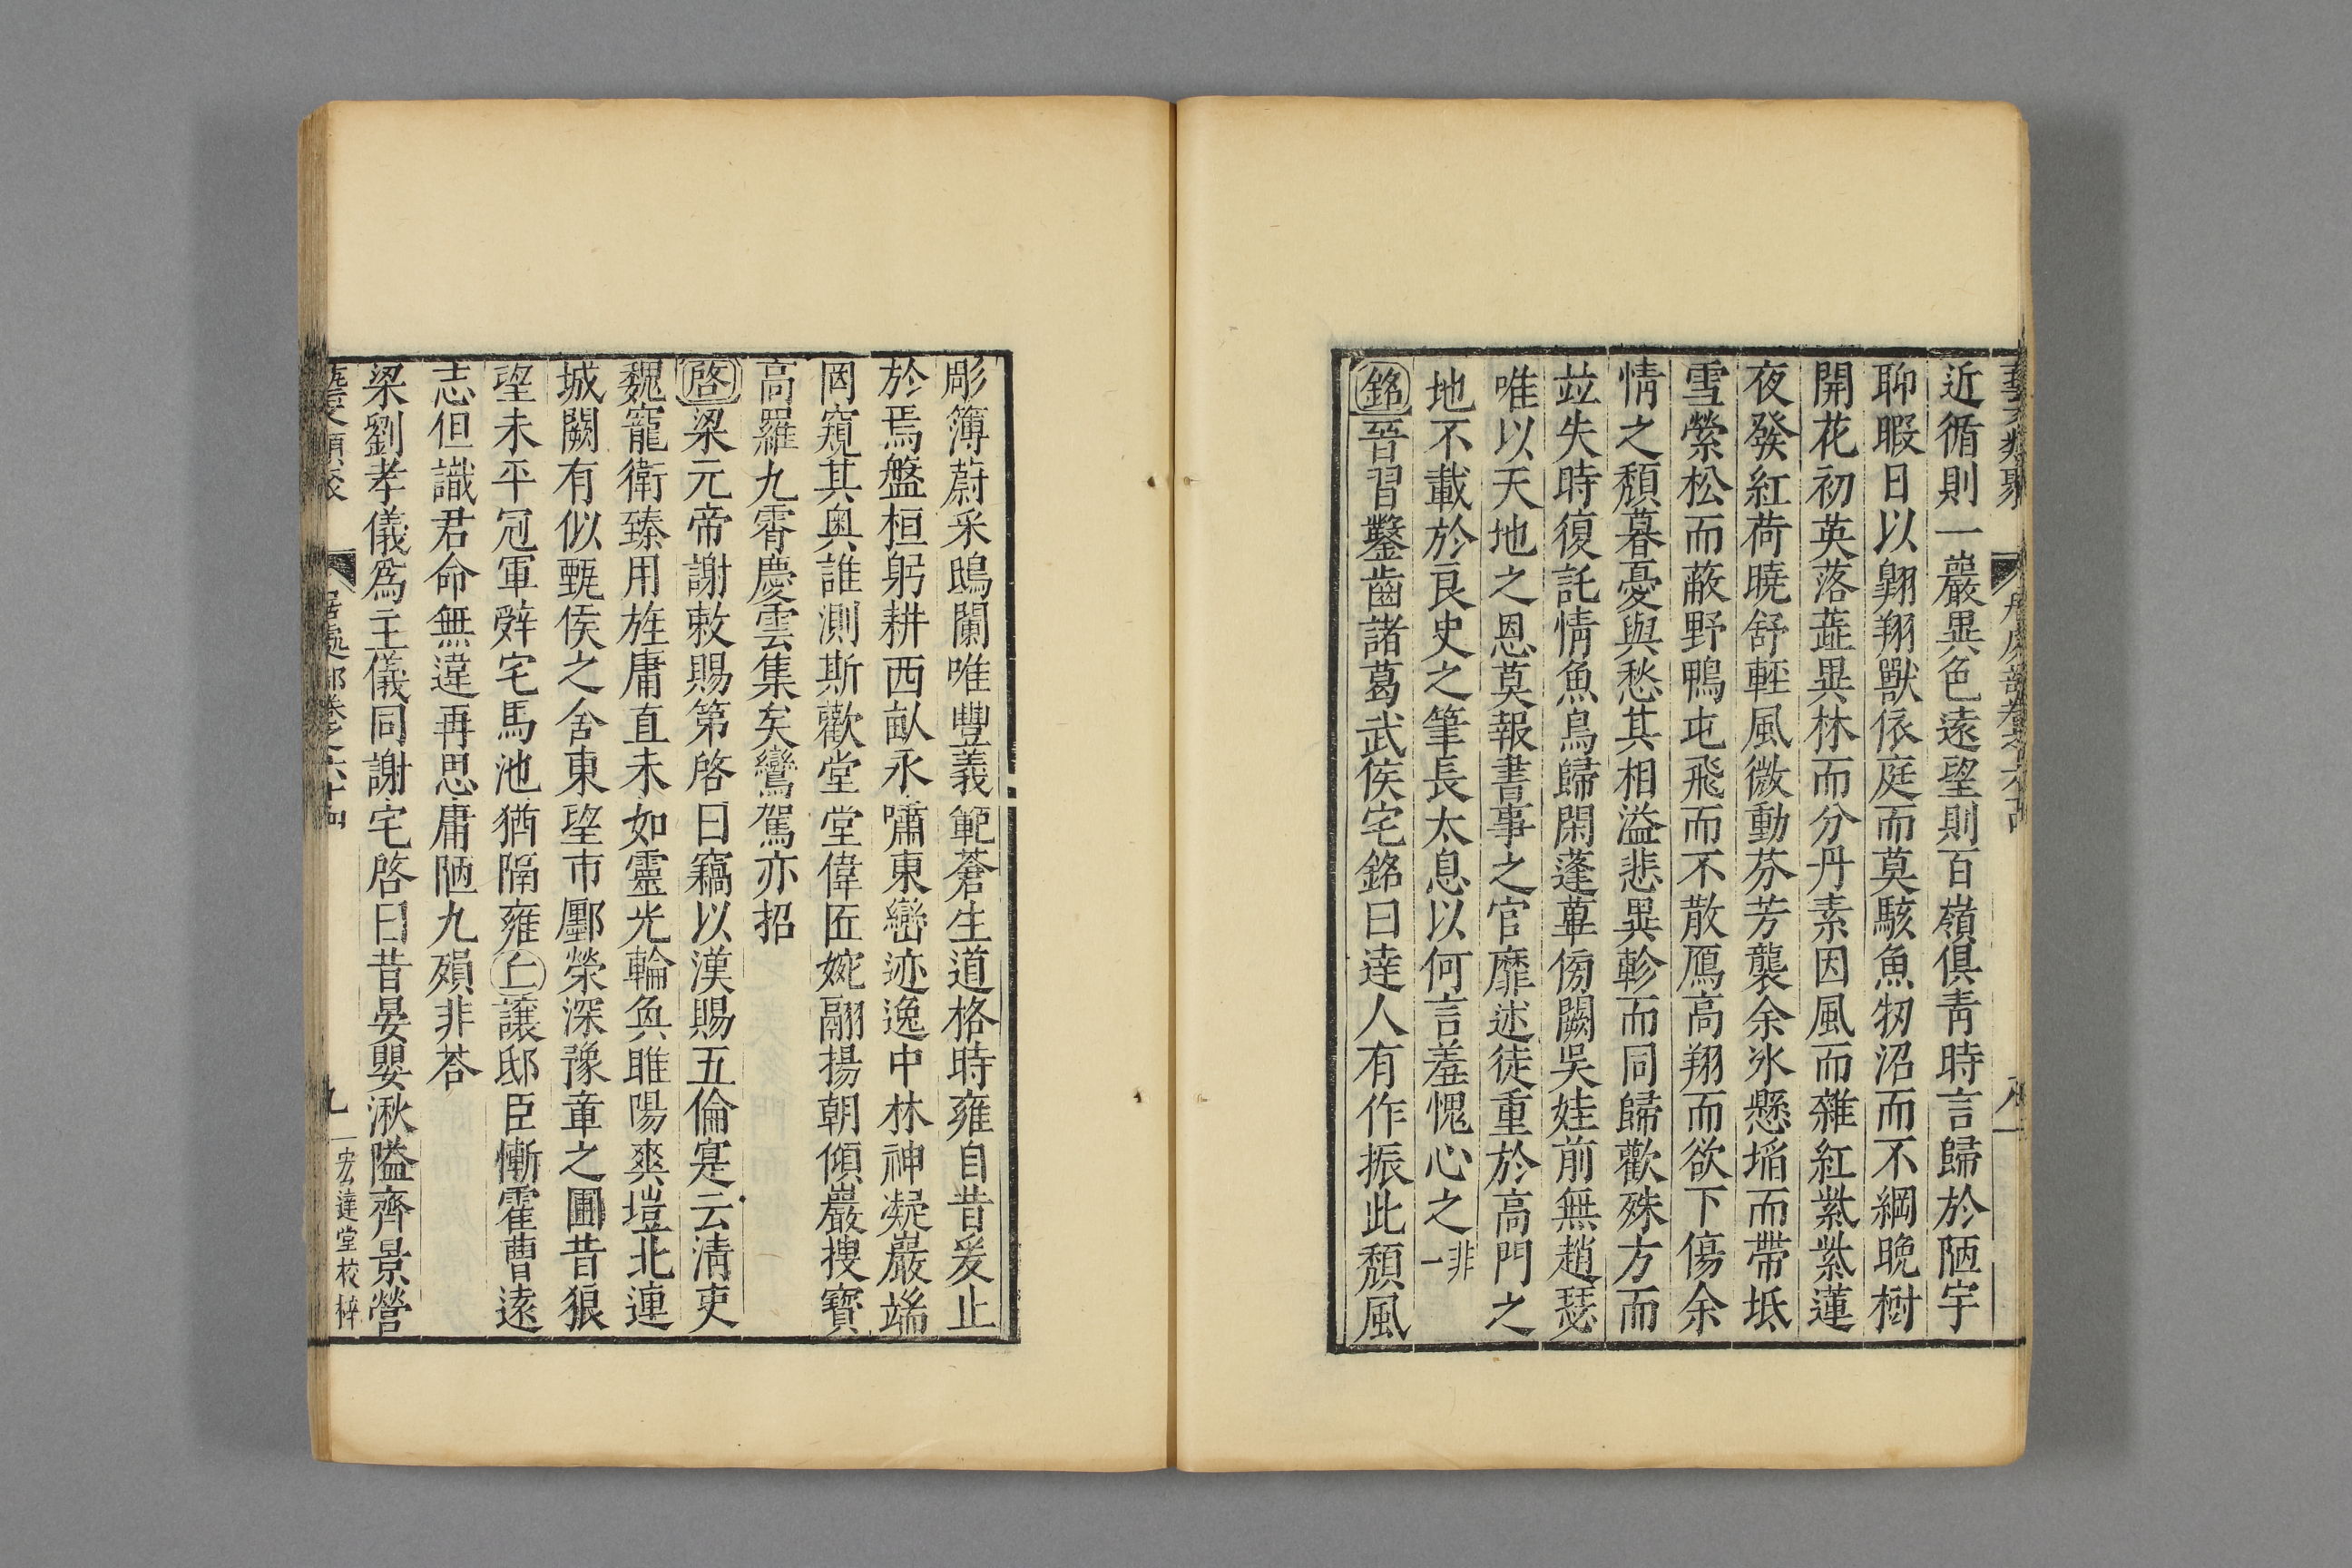 近循則一巖異色遠望則百嶺俱青時言歸於陋宇
聊暇日以翱翔獸依庭而莫駭魚牣沼而不綱晚樹
開花初英落蘂異林而分丹素因風而雜紅紫紫蓮
夜發紅荷曉舒輕風微動芬芳襲余氷懸埳而帶坻
雪縈松而蔽野鴨屯飛而不散鴈高翔而欲下傷余
情之頹暮憂與愁其相溢悲異軫而同歸歡殊方而
竝失時復託情魚鳥歸閑蓬蓽傍闕吳娃前無趙瑟
唯以天地之恩莫報書事之官靡述徒重於高門之
地不載於良史之筆長太息以何言羞愧心之非一
銘晉習鑿齒諸葛武侯宅銘曰達人有作振此頹風
彫簿蔚采鴟闌唯豐義範蒼生道格時雍自昔爰止
於焉盤桓躬耕西畝永嘯東巒迹逸中林神凝巖端
罔窺其奥誰測斯歡堂堂偉匠婉翮揚朝傾巖搜寶
高羅九霄慶雲集矣鸞駕亦招
啓梁元帝謝敕賜第啓曰竊以漢賜五倫寔云清吏
魏寵衛臻用旌庸直未如靈光輪奐雎陽爽塏北連
城闕有似甄侯之舍東望市鄽榮深豫章之圃昔狼
望未平冠軍辭宅馬池猶隔雍仁讓邸臣慚霍曹遠
志但識君命無違再思庸陋九殞非荅
梁劉孝儀爲王儀同謝宅啓曰昔晏嬰湫隘齊景營
九
宏達堂校梓